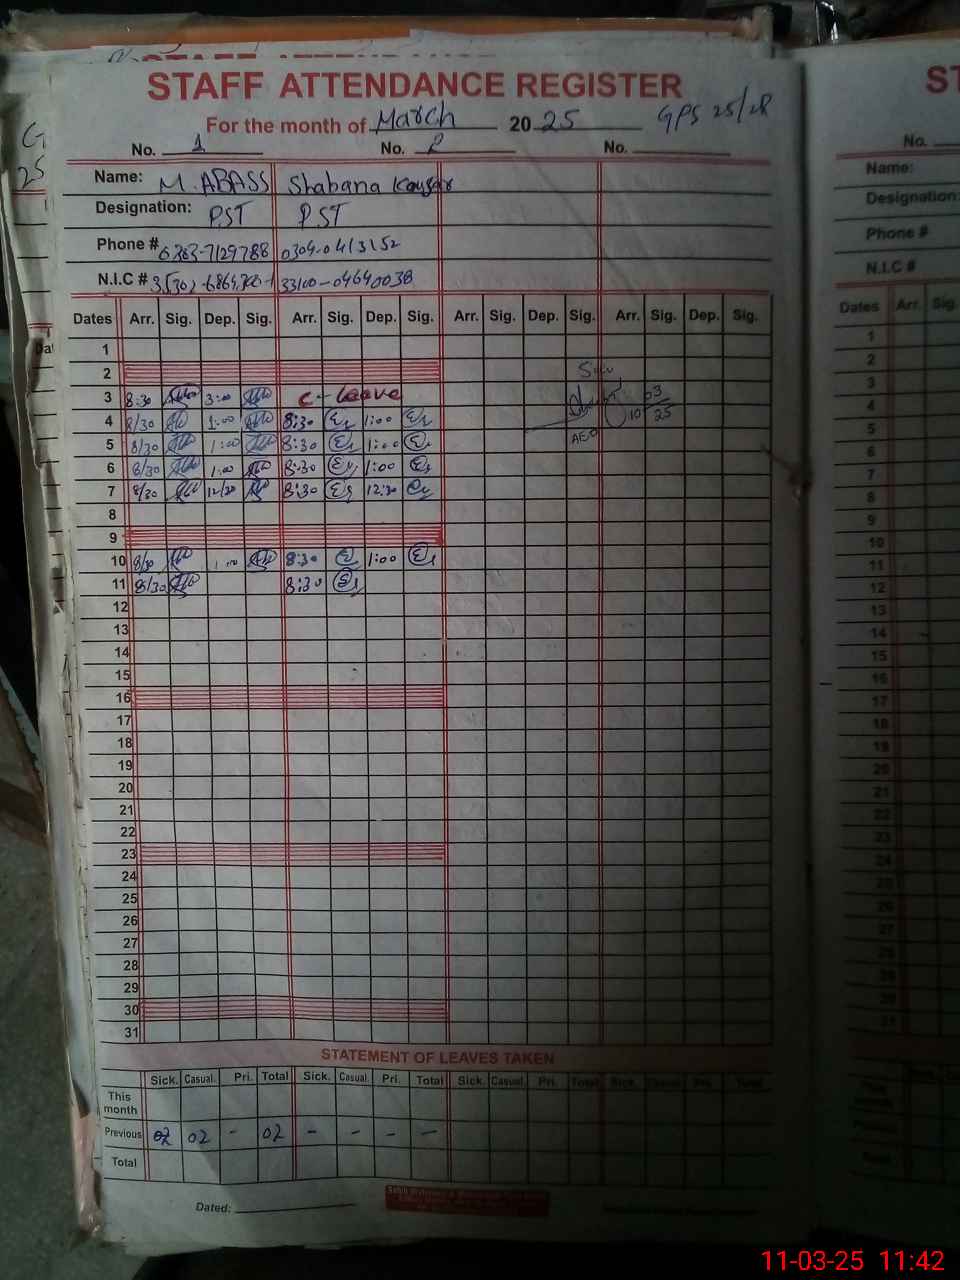 STAFF ATTENDANCE REGISTER
For the month of March 2025 GPS 25/2R
No. 1 No. 2 No.
Name: M. ABASS Shabana Kausar
Designation: PST PST
Phone # 0304-0413152
N.I.C #
Dates Arr. Sig. Dep. Sig. Arr. Sig. Dep. Sig. Arr. Sig. Dep. Sig. Arr. Sig. Dep. Sig.
1
2
3 8:30 3:00 C-leave
4 8/30 1:00 8:30 1:00
5 8/30 1:00 8:30 1:00
6 8/30 1:00 8:30 1:00
7 8/30 12/30 8:30 12:30
8
9
10 8/30 1:00 8:30 1:00
11 8/30 8:30
12
13
14
15
16
17
18
19
20
21
22
23
24
25
26
27
28
29
30
31
10 03/25
AEO
STATEMENT OF LEAVES TAKEN
Sick. Casual. Pri. Total Sick. Casual Pri. Total Sick. Casual. Pri. Total Sick. Casual Pri. Total
This month
Previous 02 02 - 02 - - - -
Total
Dated:
No.
Name:
Designation:
Phone #
N.I.C #
Dates Arr. Sig.
1
2
3
4
5
6
7
8
9
10
11
12
13
14
15
16
17
18
19
20
21
22
23
24
25
26
27
28
29
30
31
11-03-25 11:42